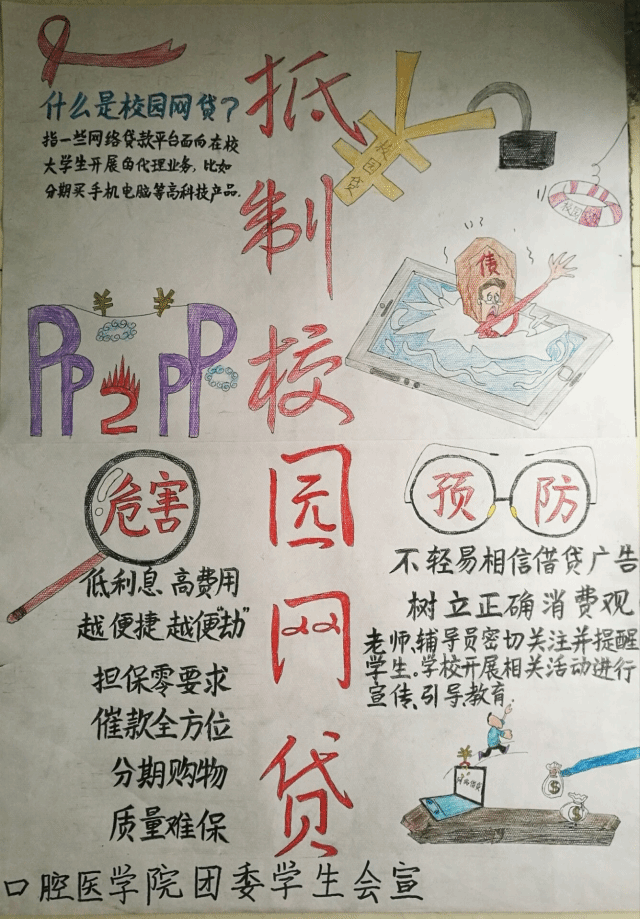 抵制校园网贷
什么是校园网贷？
指一些网络贷款平台面向在校
大学生开展的代理业务，比如
分期买手机电脑等高科技产品.
校园贷
债
PP2PP
危害
低利息 高费用
越便捷 越便"劫"
担保零要求
催款全方位
分期购物
质量难保
预防
不轻易相信借贷广告
树立正确消费观
老师、辅导员密切关注并提醒
学生。学校开展相关活动进行
宣传、引导、教育.
¥
$
$
口腔医学院团委学生会宣